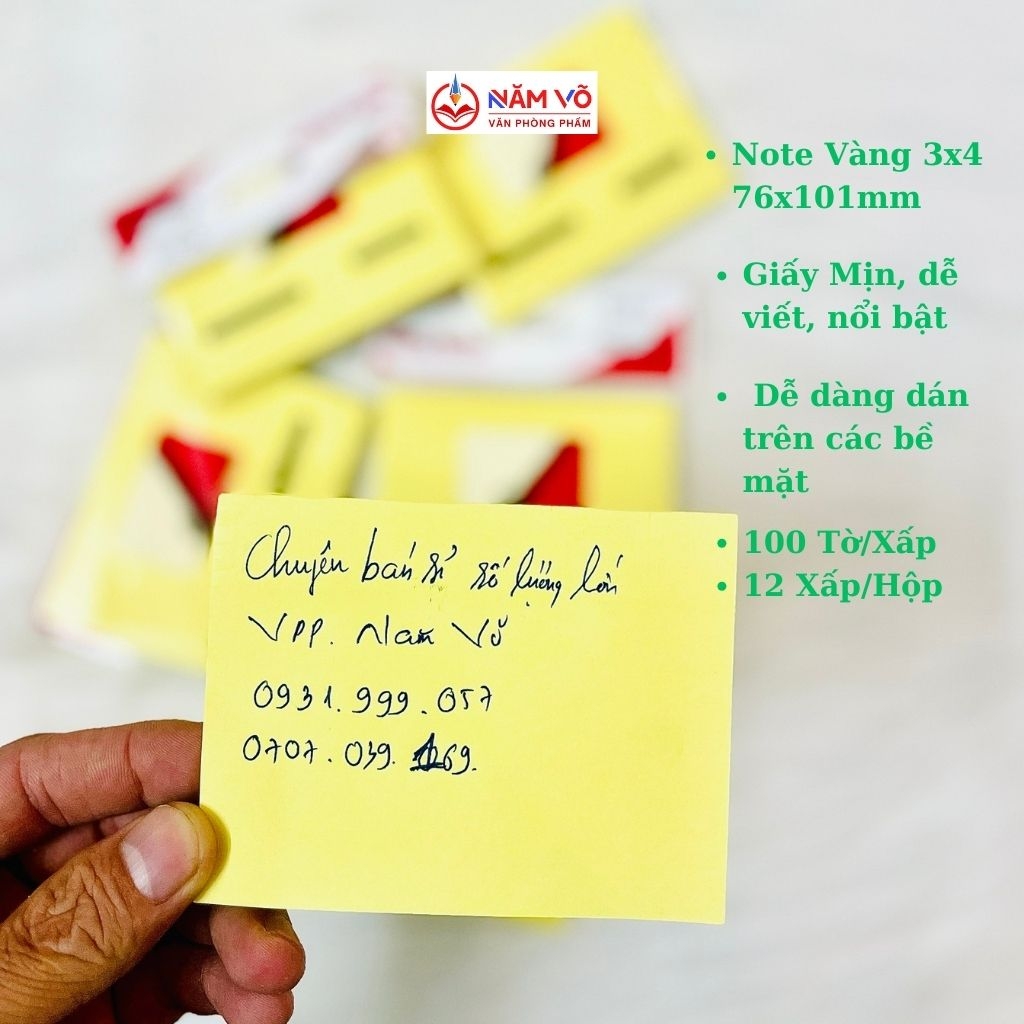 NĂM VÕ
VĂN PHÒNG PHẨM
• Note Vàng 3x4
76x101mm
• Giấy Mịn, dễ
viết, nổi bật
• Dễ dàng dán
trên các bề
mặt
• 100 Tờ/Xấp
• 12 Xấp/Hộp
Chuyên bán sỉ số lượng lớn
VPP. Năm Võ
0931.999.057
0707.039.169.